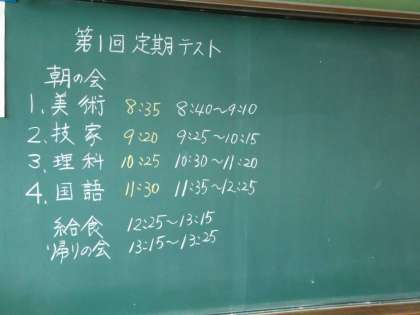 第1回定期テスト
朝の会
1.美術 8:35 8:40~9:10
2.技家 9:20 9:25~10:15
3.理科 10:25 10:30~11:20
4.国語 11:30 11:35~12:25
給食 12:25~13:15
帰りの会 13:15~13:25